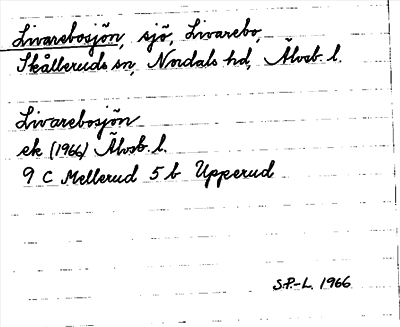 Livarebosjön, sjö, Livarebo,
Skålleruds sn, Nordals hd, Älvsb. l.
Livarebosjön
ek (1966) Älvsb. l.
9 C Mellerud 5 b Upperud
S.P.-L. 1966